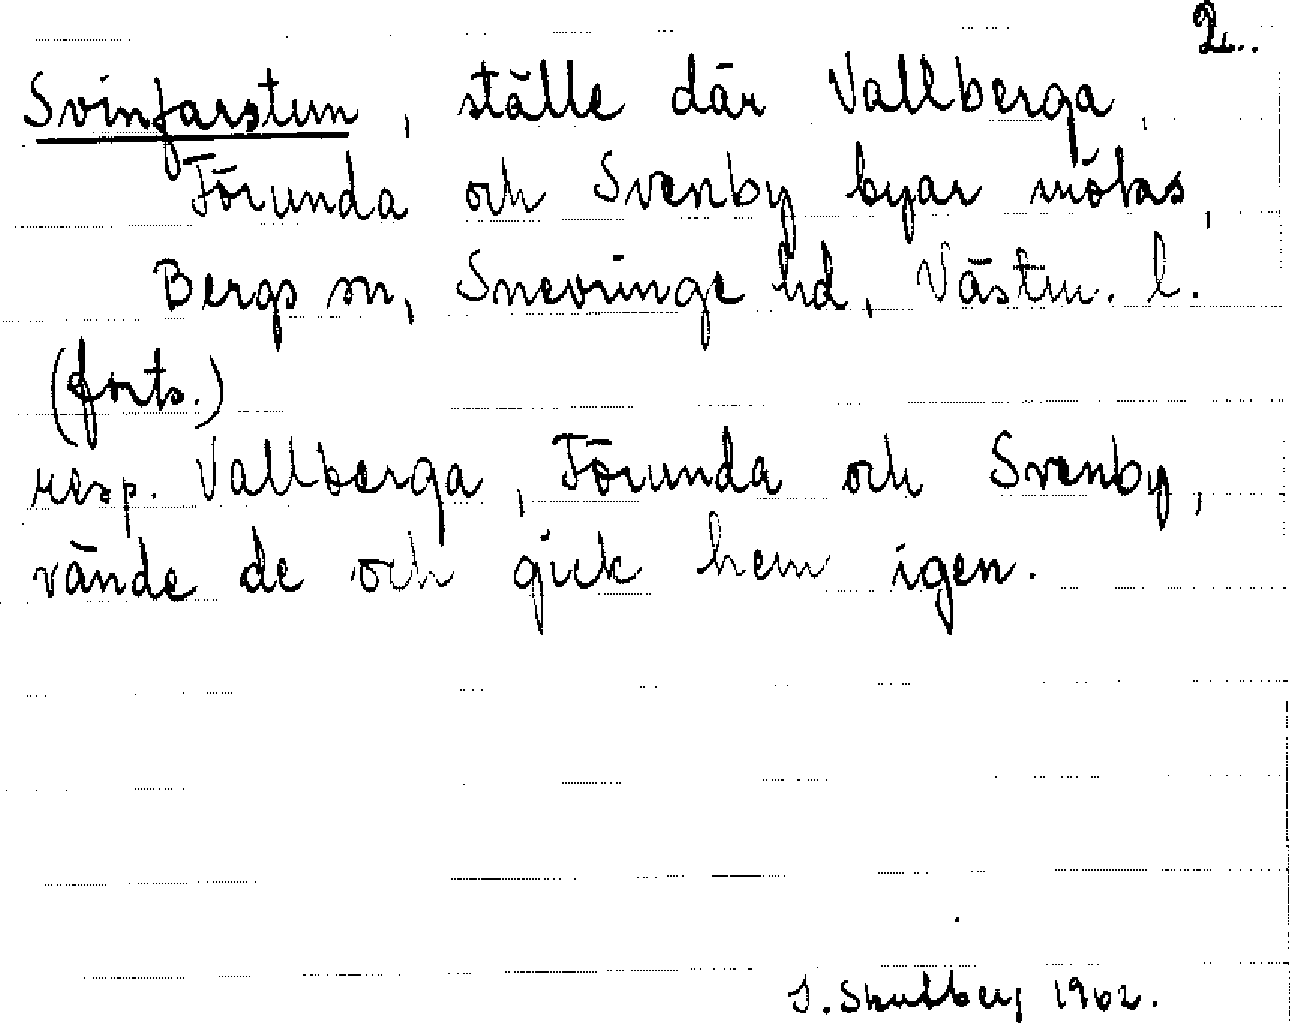 2.
Svinfarstun, ställe där Vallberga,
Förunda och Svenby byar mötas,
Bergs sn, Snevringe hd, Västm. l.
(forts.)
resp. Vallberga, Förunda och Svenby,
vände de och gick hem igen.
S. Skutberg 1962.